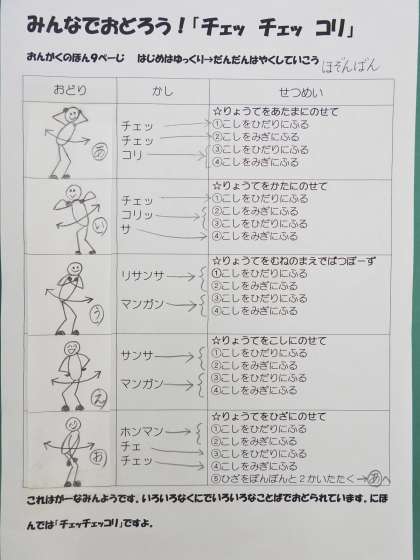 みんなでおどろう！「チェッ チェッ コリ」
おんがくのほん9ページ はじめはゆっくり→だんだんはやくしていこう ほぞんばん
おどり かし せつめい
あ
チェッ
チェッ
コリ
☆りょうてをあたまにのせて
①こしをひだりにふる
②こしをみぎにふる
③こしをひだりにふる
④こしをみぎにふる
い
チェッ
コリッ
サ
☆りょうてをかたにのせて
①こしをひだりにふる
②こしをみぎにふる
③こしをひだりにふる
④こしをみぎにふる
う
リサンサ
マンガン
☆りょうてをむねのまえでばつぽーず
①こしをひだりにふる
②こしをみぎにふる
③こしをひだりにふる
④こしをみぎにふる
え
サンサ
マンガン
☆りょうてをこしにのせて
①こしをひだりにふる
②こしをみぎにふる
③こしをひだりにふる
④こしをみぎにふる
お
ホンマン
チェ
チェッ
☆りょうてをひざにのせて
①こしをひだりにふる
②こしをみぎにふる
③こしをひだりにふる
④こしをみぎにふる
⑤ひざをぽんぽんと2かいたたく→あへ
これはがーなみんようです。いろいろなくにでいろいろなことばでおどられています。にほ
んでは「チェッチェッコリ」ですよ。